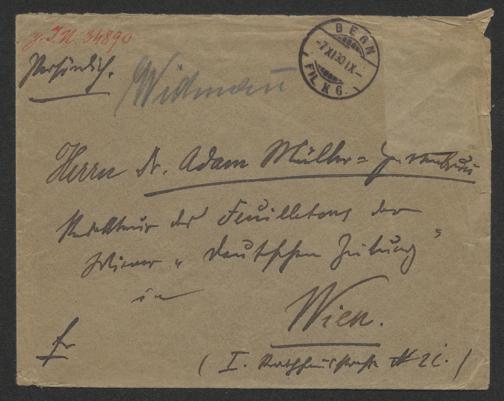 z. I.N. 34890
Persönlich.
Widmann
BERN
-7.XI.30.IX-
FIL. K G.
Herrn Dr. Adam Müller=Guttenbrunn
Redakteur des Feuilletons der
Wiener "Deutschen Zeitung"
in
Wien.
fr
( I. Rathhausstraße